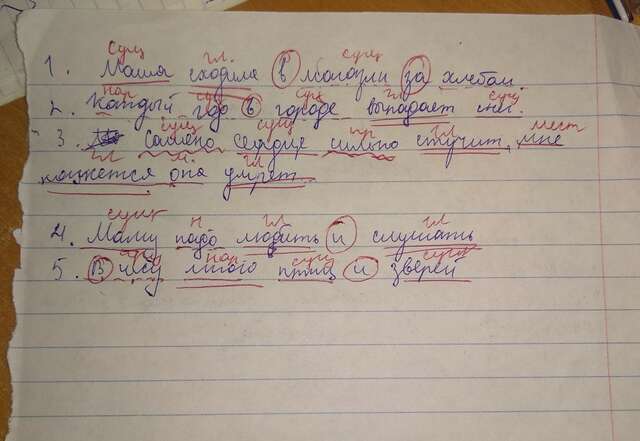 сущ гл. сущ
1. Маша сходила в магазин за хлебом.
нар сущ сущ гл сущ
2. Каждый год в городе выпадает снег.
сущ сущ пр гл мест
3. сердце сильно стучит, мне
гл гл
кажется она умрет.
сущ н гл гл
4. Маму надо любить и слушать
нар сущ сущ
5. В лесу много птиц и зверей